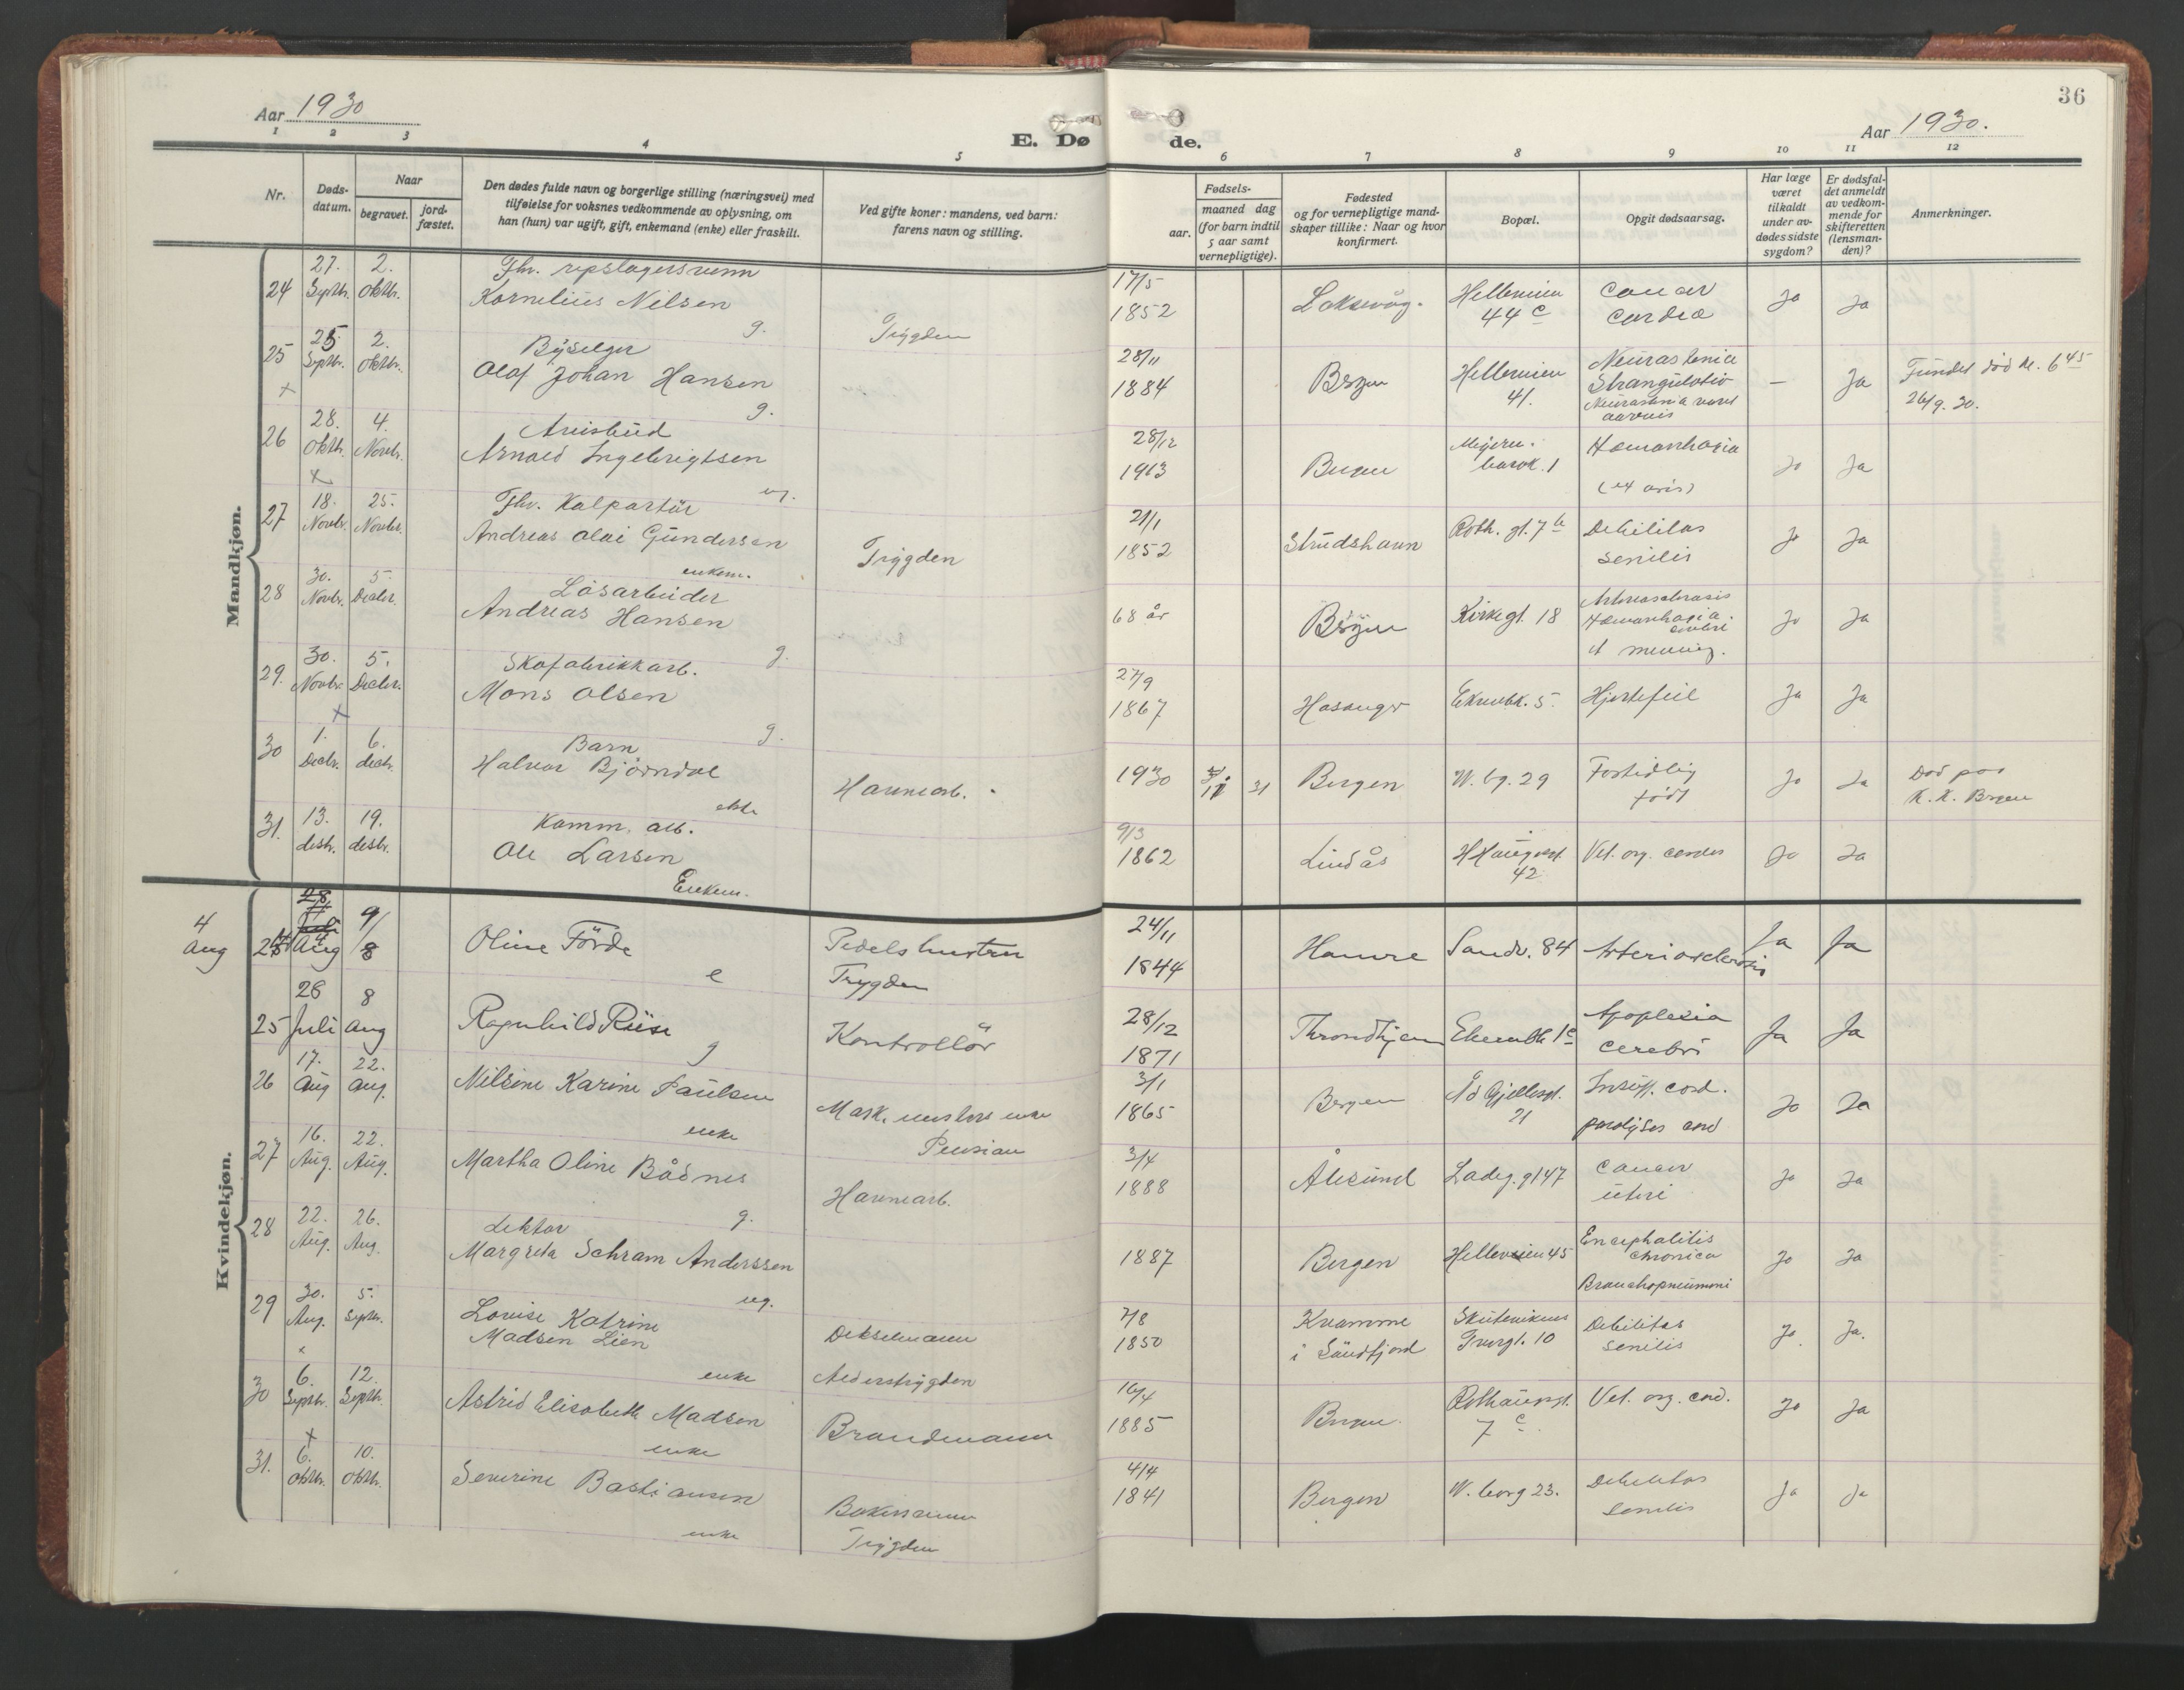 Aar 1930
E. Dø
de.
Aar 1930.
36
1 2 3 4 5 6 7 8 9 10 11 12
Nr.
Døds-
datum.
Naar
begravet.
jord-
fæstet.
Den dødes fulde navn og borgerlige stilling (næringsvei) med
tilføielse for voksnes vedkommende av oplysning, om
han (hun) var ugift, gift, enkemand (enke) eller fraskilt.
Ved gifte koner: mandens, ved barn:
farens navn og stilling.
Fødsels-
aar.
maaned dag
(for barn indtil
5 aar samt
vernepligtige).
Fødested
og for vernepligtige mand-
skaper tillike: Naar og hvor
konfirmert.
Bopæl.
Opgit dødsaarsag.
Har læge
været
tilkaldt
under av-
dødes sidste
sygdom?
Er dødsfal-
det anmeldt
av vedkom-
mende for
skifteretten
(lensman-
den)?
Anmerkninger.
Mandkjøn.
24 27. Septbr. 2. Oktbr. Fhv. repslagersvenn
Kornelius Nilsen g. Trygden 17/5 1852 Laksevåg. Helleveien 44 c Cancer cardia Ja Ja
25 25 Septbr. 2. Oktbr. Byselger
Olaf Johan Hansen g. 28/11 1884 Bergen Helleveien 41. Neurastenia
Strangulatio
Neurastenia
— Ja Fundet død kl. 6 45
26/9. 30.
26 28. Oktbr. 4. Novbr. Avisbud
Arnold Ingebrigtsen ug. 28/12 1913 Bergen 1 Ja Ja
27 18. Novbr. 25. Novbr. Fhv. Kolportür
Andreas Olai Gundersen enkem. Trygden 21/1 1852 Strudshavn Roth. gt. 7 b Debilitas
senilis Ja Ja
28 30. Novbr. 5. Decbr. Løsarbeider
Andreas Hansen g. 68 år Bergen Kirkegt. 18 Arterosclerosis
et mening. Ja Ja
29. 30. Novbr. 5. Decbr. Skofabrikkarb.
Mons Olsen g. 27/9 1867 Hosanger Ekrenbk. 5. Hjertefeil Ja Ja
30 1. Decbr. 6. decbr. Barn
Halvor Bjørndal ekte Havnearb. 1930 31 Bergen W. bg. 29 Fortidlig
født Ja Ja Død på
K. K. Bergen
31. 13. desbr. 19. desbr. Komm. arb.
Ole Larsen Enkem. 9/3 1862 Lindås H Haugesgt. 42 Vit. org. cordis Ja Ja
Kvindekjøn.
4
Aug
24 Aug 9/8 Oline Förde e Pedels hustru
Trygden 24/11 1844 Hamre Sandv. 84 Arteriosclerosis Ja Ja
25 28 Juli 8 Aug Ragnhild Riise g Kontrollör 28/12 1871 Throndhjem Ekrenbk 1c Apoplexia
cerebri Ja Ja
26 17. Aug 22. Aug. Nilsine Karine Paulsen enke Mask. mesters enke
Pension 3/1 1865 Bergen Nd Fjellsgt. 21 Insuff. cord.
paralyses cord Ja Ja
27 16. Aug. 22. Aug. Martha Oline Bådnes g. Havnearb. 3/4 1888 Ålesund Ladeg. gt 47 Cancer
uteri Ja Ja
28 22. Aug. 26. Aug. Lektor
Margreta Schram Anderssen ug. 1887 Bergen Helleveien 45 Encephalitis
chronica
Bronchopneumoni Ja Ja
29 30. Aug. 5. Septbr. Lovise Katrine
Madsen Lien enke Dekselmann
Alderstrygden 7/8 1850 Kvamme
i Sundfjord Skuteviksv.
Tverrgt. 10 Debilitas
senilis Ja. Ja.
30 6. Septbr. 12. Septbr. Astrid Elisabeth Madsen enke Brandmann 16/4 1885 Bergen. Rothaugsgt. 7 c. Vit. org. cord. Ja Ja
31. 6. Oktbr. 10. Oktbr. Severine Bastiansen enke Trygden 4/4 1841 Bergen W. borg 23. Debilitas
senilis Ja Ja